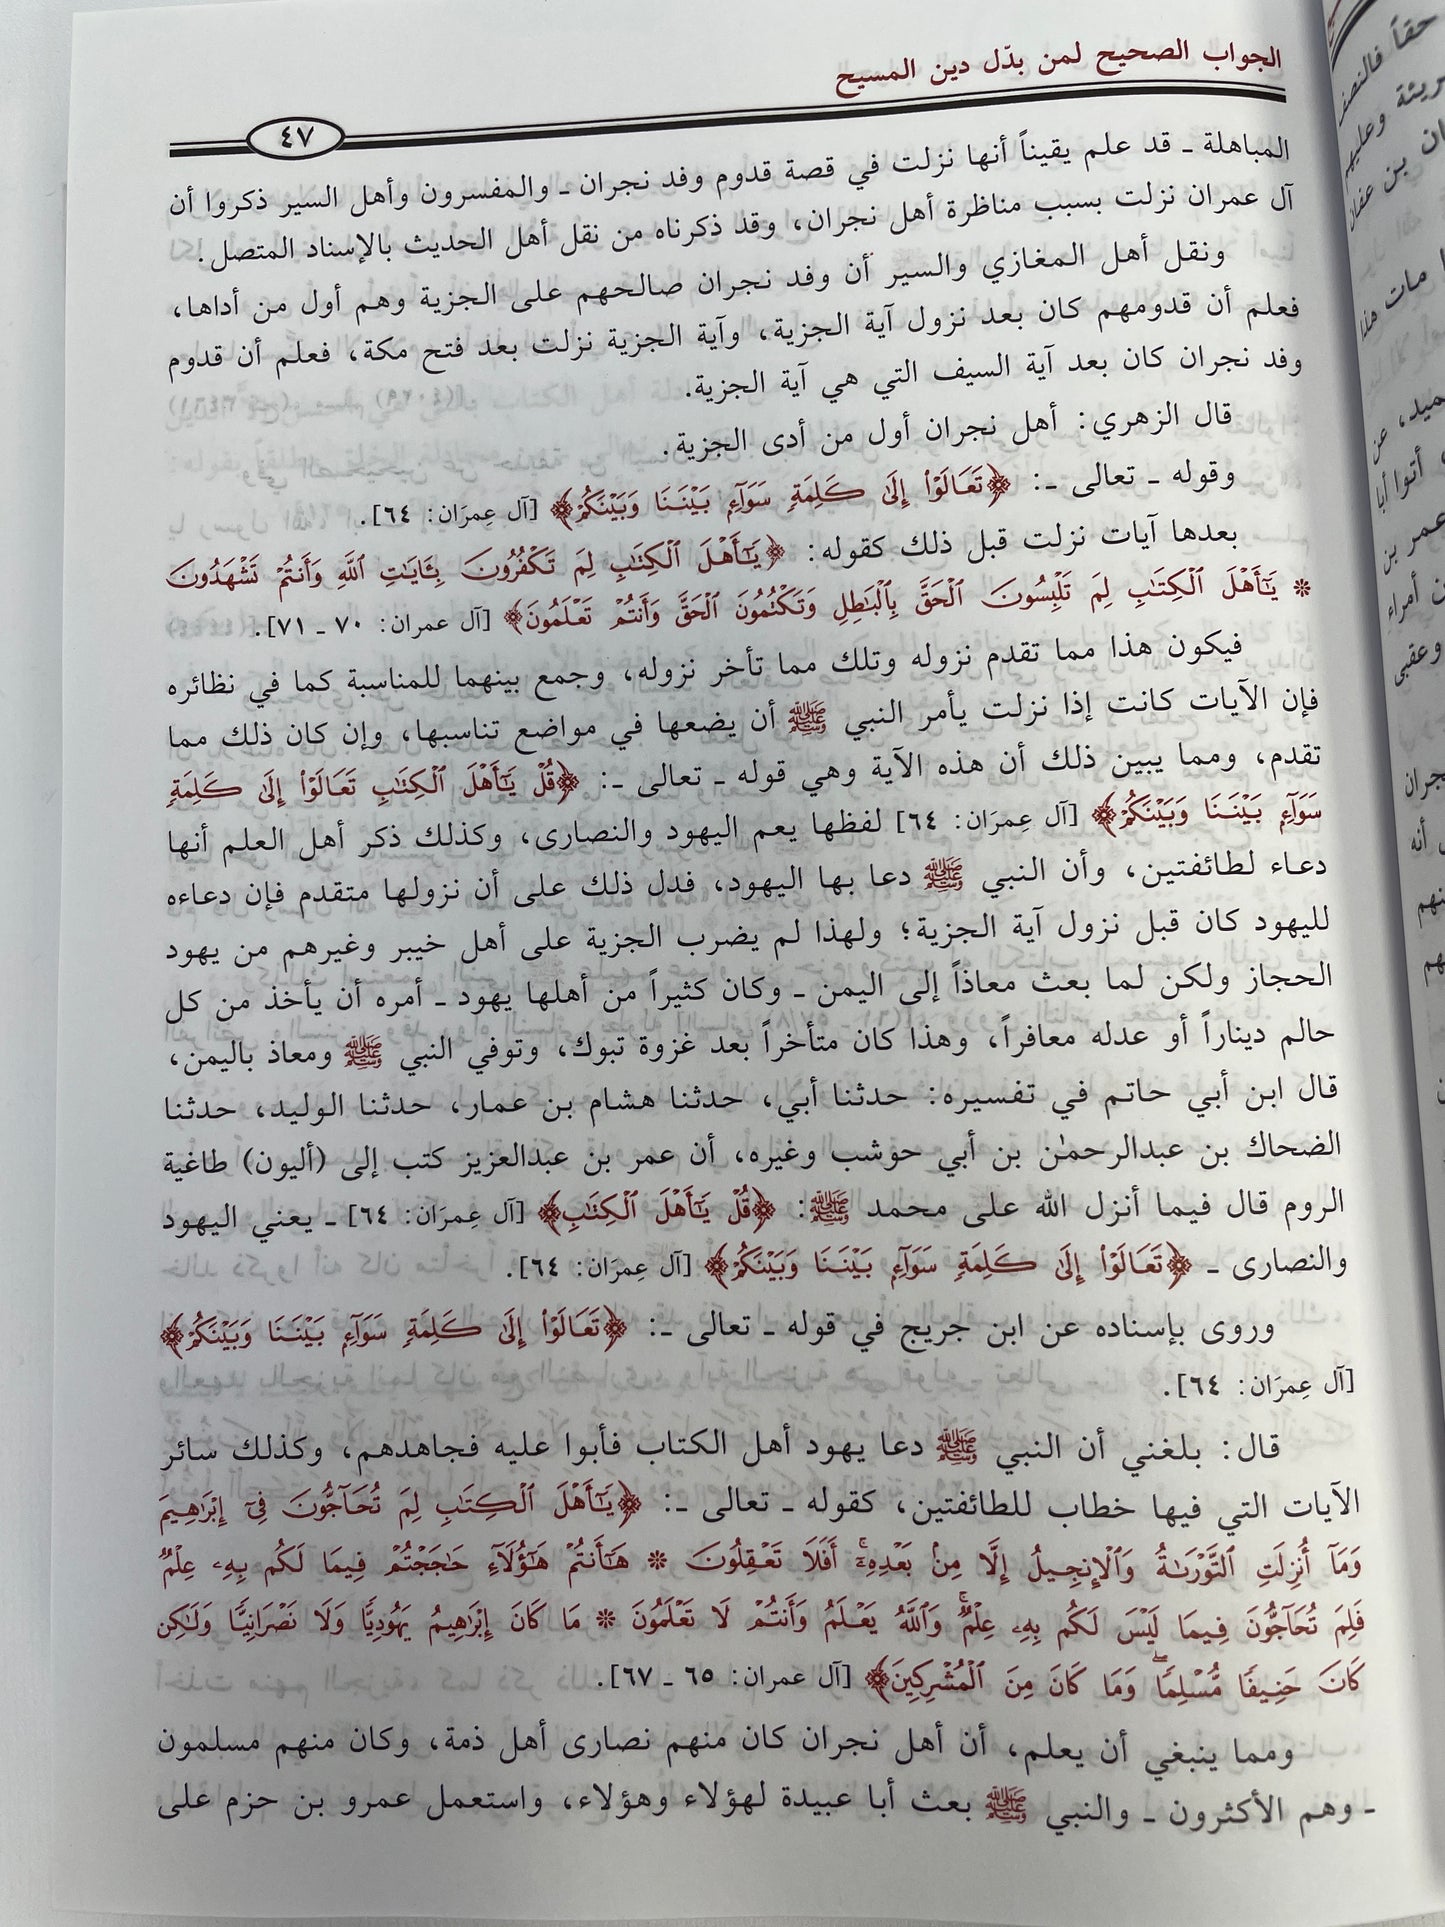 الجواب الصحيح لمن بدّل دين المسيح
٤٧
المباهلة ـ قد علم يقيناً أنها نزلت في قصة قدوم وفد نجران ـ والمفسرون وأهل السير ذكروا أن
آل عمران نزلت بسبب مناظرة أهل نجران، وقد ذكرناه من نقل أهل الحديث بالإسناد المتصل.
ونقل أهل المغازي والسير أن وفد نجران صالحهم على الجزية وهم أول من أداها،
فعلم أن قدومهم كان بعد نزول آية الجزية، وآية الجزية نزلت بعد فتح مكة، فعلم أن قدوم
وفد نجران كان بعد آية السيف التي هي آية الجزية.
قال الزهري: أهل نجران أول من أدى الجزية.
وقوله ـ تعالى ـ: ﴿تَعَالَوْا۟ إِلَىٰ كَلِمَةٍ سَوَآءٍ بَيْنَنَا وَبَيْنَكُمْ﴾ [آل عِمرَان: ٦٤].
بعدها آيات نزلت قبل ذلك كقوله: ﴿يَـٰٓأَهْلَ ٱلْكِتَـٰبِ لِمَ تَكْفُرُونَ بِـَٔايَـٰتِ ٱللَّهِ وَأَنتُمْ تَشْهَدُونَ
* يَـٰٓأَهْلَ ٱلْكِتَـٰبِ لِمَ تَلْبِسُونَ ٱلْحَقَّ بِٱلْبَـٰطِلِ وَتَكْتُمُونَ ٱلْحَقَّ وَأَنتُمْ تَعْلَمُونَ﴾ [آل عمران: ٧٠ ـ ٧١].
فيكون هذا مما تقدم نزوله وتلك مما تأخر نزوله، وجمع بينهما للمناسبة كما في نظائره
فإن الآيات كانت إذا نزلت يأمر النبي ﷺ أن يضعها في مواضع تناسبها، وإن كان ذلك مما
تقدم، ومما يبين ذلك أن هذه الآية وهي قوله ـ تعالى ـ: ﴿قُلْ يَـٰٓأَهْلَ ٱلْكِتَـٰبِ تَعَالَوْا۟ إِلَىٰ كَلِمَةٍ
سَوَآءٍ بَيْنَنَا وَبَيْنَكُمْ﴾ [آل عِمرَان: ٦٤] لفظها يعم اليهود والنصارى، وكذلك ذكر أهل العلم أنها
دعاء لطائفتين، وأن النبي ﷺ دعا بها اليهود، فدل ذلك على أن نزولها متقدم فإن دعاءه
لليهود كان قبل نزول آية الجزية؛ ولهذا لم يضرب الجزية على أهل خيبر وغيرهم من يهود
الحجاز ولكن لما بعث معاذاً إلى اليمن ـ وكان كثيراً من أهلها يهود ـ أمره أن يأخذ من كل
حالم ديناراً أو عدله معافراً، وهذا كان متأخراً بعد غزوة تبوك، وتوفي النبي ﷺ ومعاذ باليمن،
قال ابن أبي حاتم في تفسيره: حدثنا أبي، حدثنا هشام بن عمار، حدثنا الوليد، حدثنا
الضحاك بن عبدالرحمٰن بن أبي حوشب وغيره، أن عمر بن عبدالعزيز كتب إلى (أليون) طاغية
الروم قال فيما أنزل الله على محمد ﷺ: ﴿قُلْ يَـٰٓأَهْلَ ٱلْكِتَـٰبِ﴾ [آل عِمرَان: ٦٤] ـ يعني اليهود
والنصارى ـ ﴿تَعَالَوْا۟ إِلَىٰ كَلِمَةٍ سَوَآءٍ بَيْنَنَا وَبَيْنَكُمْ﴾ [آل عِمرَان: ٦٤].
وروى بإسناده عن ابن جريج في قوله ـ تعالى ـ: ﴿تَعَالَوْا۟ إِلَىٰ كَلِمَةٍ سَوَآءٍ بَيْنَنَا وَبَيْنَكُمْ﴾
[آل عِمرَان: ٦٤].
قال: بلغني أن النبي ﷺ دعا يهود أهل الكتاب فأبوا عليه فجاهدهم، وكذلك سائر
الآيات التي فيها خطاب للطائفتين، كقوله ـ تعالى ـ: ﴿يَـٰٓأَهْلَ ٱلْكِتَـٰبِ لِمَ تُحَآجُّونَ فِىٓ إِبْرَٰهِيمَ
وَمَآ أُنزِلَتِ ٱلتَّوْرَىٰةُ وَٱلْإِنجِيلُ إِلَّا مِنۢ بَعْدِهِۦٓ أَفَلَا تَعْقِلُونَ * هَـٰٓأَنتُمْ هَـٰٓؤُلَآءِ حَـٰجَجْتُمْ فِيمَا لَكُم بِهِۦ عِلْمٌ
فَلِمَ تُحَآجُّونَ فِيمَا لَيْسَ لَكُم بِهِۦ عِلْمٌ وَٱللَّهُ يَعْلَمُ وَأَنتُمْ لَا تَعْلَمُونَ * مَا كَانَ إِبْرَٰهِيمُ يَهُودِيًّا وَلَا نَصْرَانِيًّا وَلَـٰكِن
كَانَ حَنِيفًا مُّسْلِمًا وَمَا كَانَ مِنَ ٱلْمُشْرِكِينَ﴾ [آل عمران: ٦٥ ـ ٦٧].
ومما ينبغي أن يعلم، أن أهل نجران كان منهم نصارى أهل ذمة، وكان منهم مسلمون
ـ وهم الأكثرون ـ والنبي ﷺ بعث أبا عبيدة لهؤلاء وهؤلاء، واستعمل عمرو بن حزم على